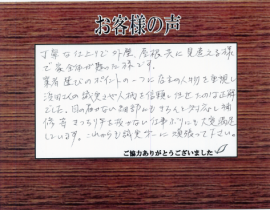 お客様の声
丁寧な仕上りで外壁、屋根共に見違える様
で家全体が甦った様です。
業者選びのポイントの一つに店主の人物を重視し
さんの誠実さや人柄を信頼し任せたのは正解
でした。目の届かない細部にもきちんと
等きっちり手を抜かない仕事ぶりにも大変満足
しています。これからも誠実第一に頑張って下さい。
ご協力ありがとうございました